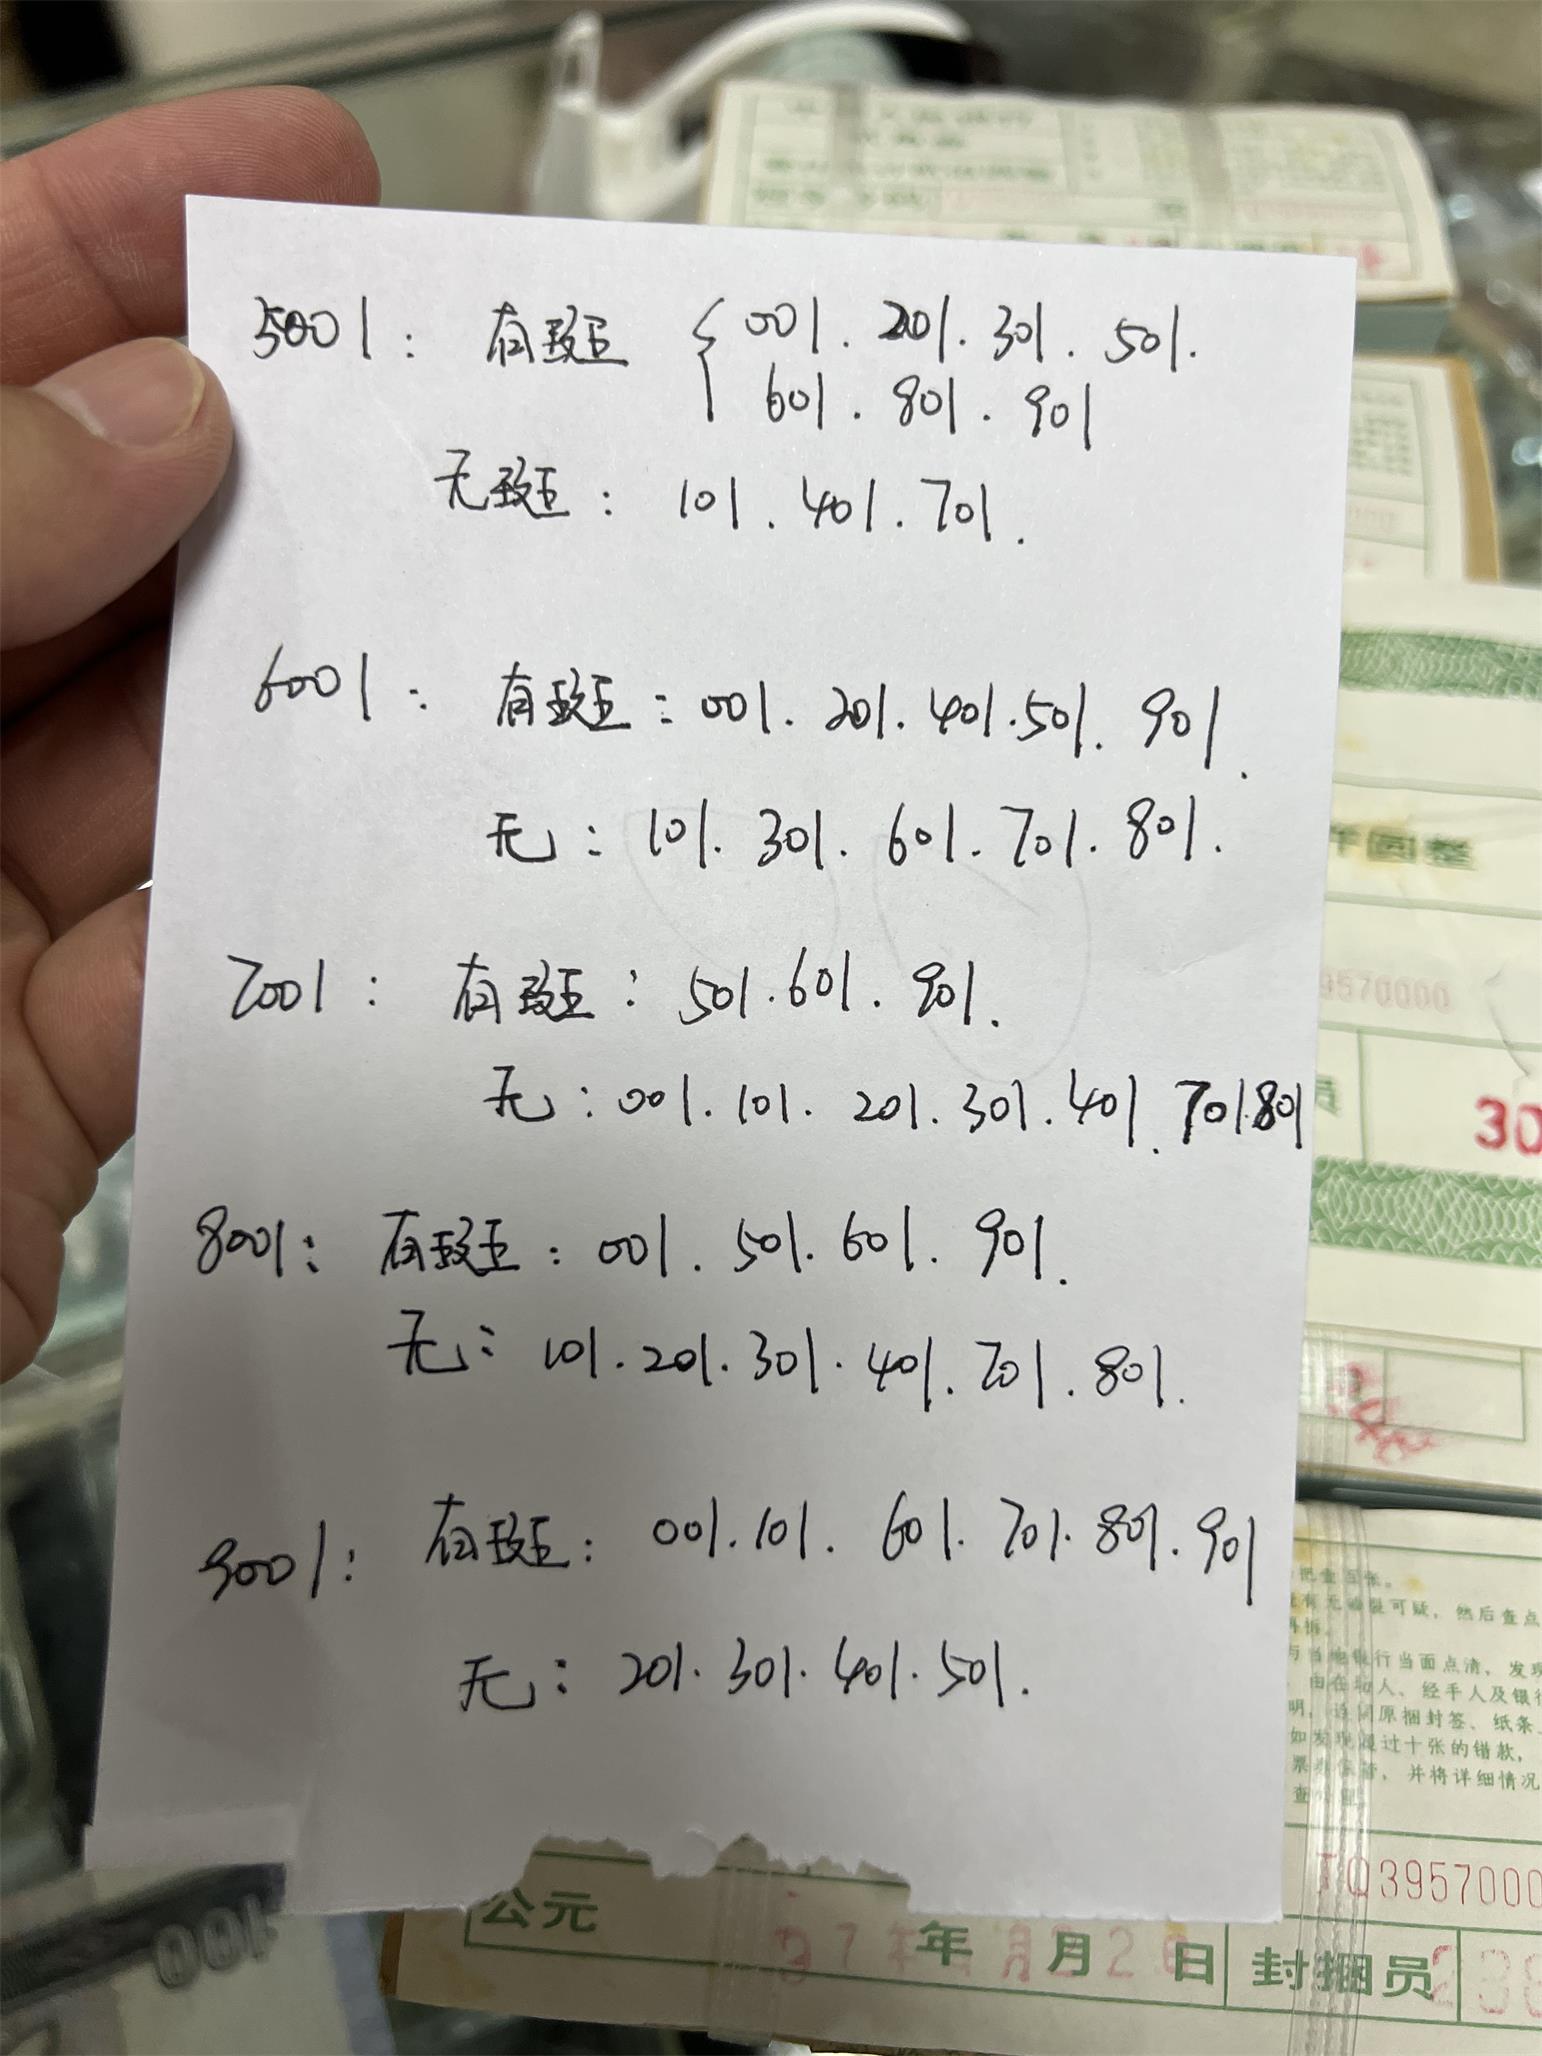 5001: 有斑 { 001. 201. 301. 501.
601. 801. 901
无斑: 101. 401. 701.
6001: 有斑: 001. 201. 401. 501. 901.
无: 101. 301. 601. 701. 801.
7001: 有斑: 501. 601. 901.
无: 001. 101. 201. 301. 401. 701. 801
8001: 有斑: 001. 501. 601. 901.
无: 101. 201. 301. 401. 701. 801.
9001: 有斑: 001. 101. 601. 701. 801. 901
无: 201. 301. 401. 501.
圆整
9570000
员 30
然后查点
行当面点清，发现
经手人及银行
原捆封签、纸条
过十张的错款，
并将详细情况
TQ3957000
公元 年 月 26 日 封捆员
100